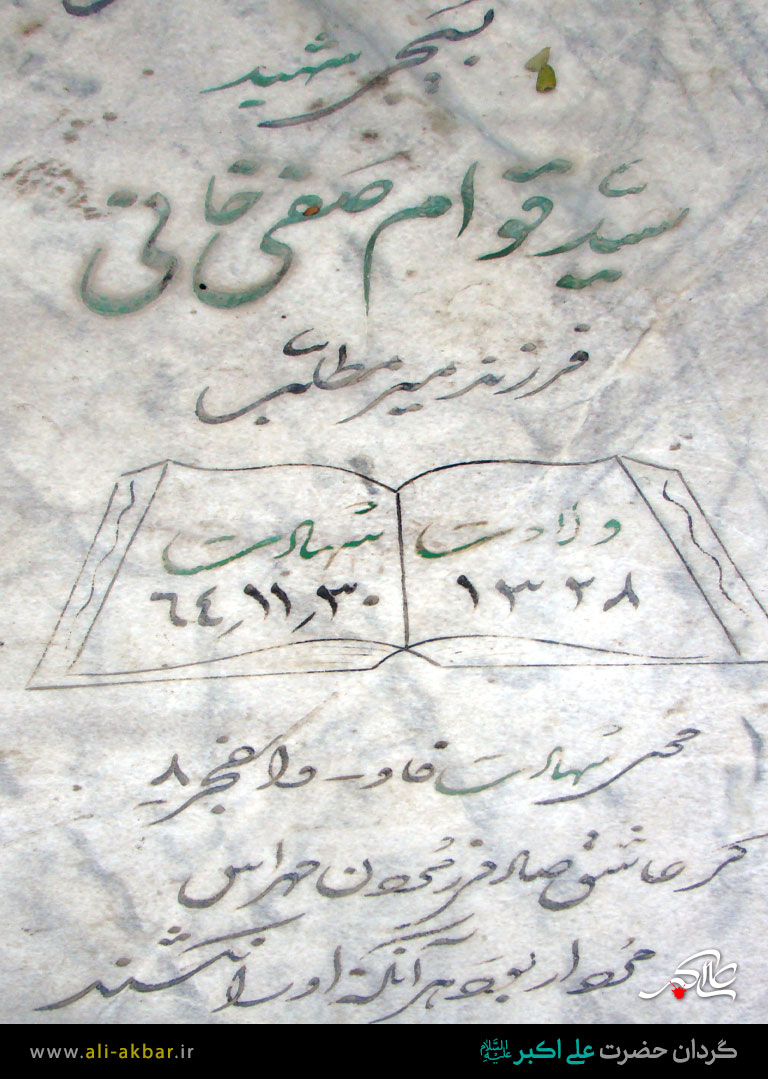 بسیجی شهید
سیّد قوام صفی خانی
فرزند میر مطلب
ولادت
۱۳۲۸
شهادت
٦٤٫۱۱٫۳۰
محل شهادت فاو - والفجر ۸
گر عاشق صادقی ز مردن مهراس
مردار بود هر آنکه او را نکشند
گردان حضرت علی اکبر علیه السلام
www.ali-akbar.ir